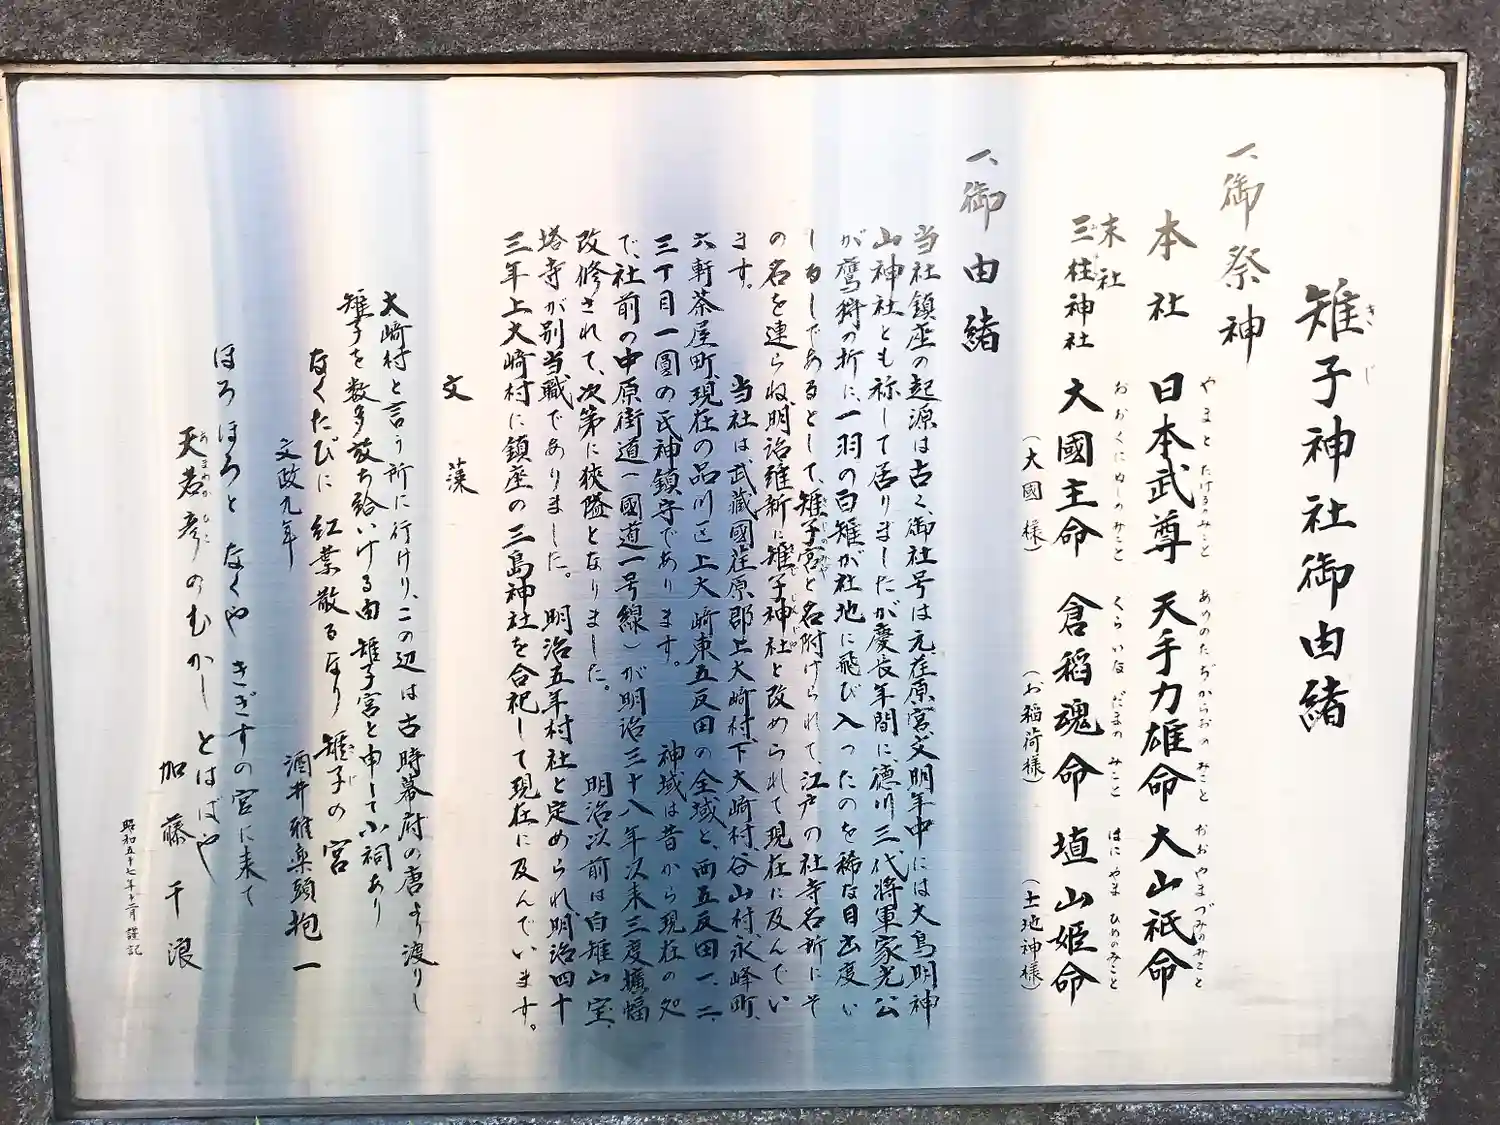 雉子神社御由緒
きじ
一、御祭神
本社 日本武尊 天手力雄命 大山祇命
やまとたけるのみこと あめのたぢからおのみこと おおやまづみのみこと
末社
三柱神社 大國主命 倉稲魂命 埴山姫命
おおくにぬしのみこと くらいなだまのみこと はにやまひめのみこと
(大國様) (お稲荷様) (土地神様)
一、御由緒
当社鎮座の起源は古く、御社号は元荏原宮文明年中には大鳥明神
山神社とも称して居りましたが慶長年間に、徳川三代将軍家光公
が鷹狩の折に、一羽の白雉が社地に飛び入ったのを稀な目出度い
しるしであるとして、雉子宮と名附けられて江戸の社寺名所にそ
の名を連らね、明治維新に雉子神社と改められて現在に及んでい
ます。 当社は武蔵國荏原郡上大崎村、下大崎村、谷山村、永峰町、
六軒茶屋町、現在の品川区上大崎東五反田の全域と、西五反田一、二、
三丁目一圓の氏神鎮守であります。 神域は昔から現在の処
で、社前の中原街道(國道一号線)が明治三十八年以来三度擴幅
改修されて、次第に狭隘となりました。 明治以前は白雉山宝
塔寺が別当職でありました。 明治五年村社と定められ明治四十
三年上大崎村に鎮座の三島神社を合祀して現在に及んでいます。
文藻
大崎村と言う所に行けり、この辺は古時幕府の唐より渡りし
雉子を数多放ち給いける由 雉子宮と申して小祠あり
なくたびに 紅葉散るなり 雉子の宮
文政九年 酒井雅楽頭抱一
ほろほろと なくや きぎすの宮に来て
天若彦のむかし とはばや
あまわかひこ
加藤千浪
昭和五十七年十二月 謹記